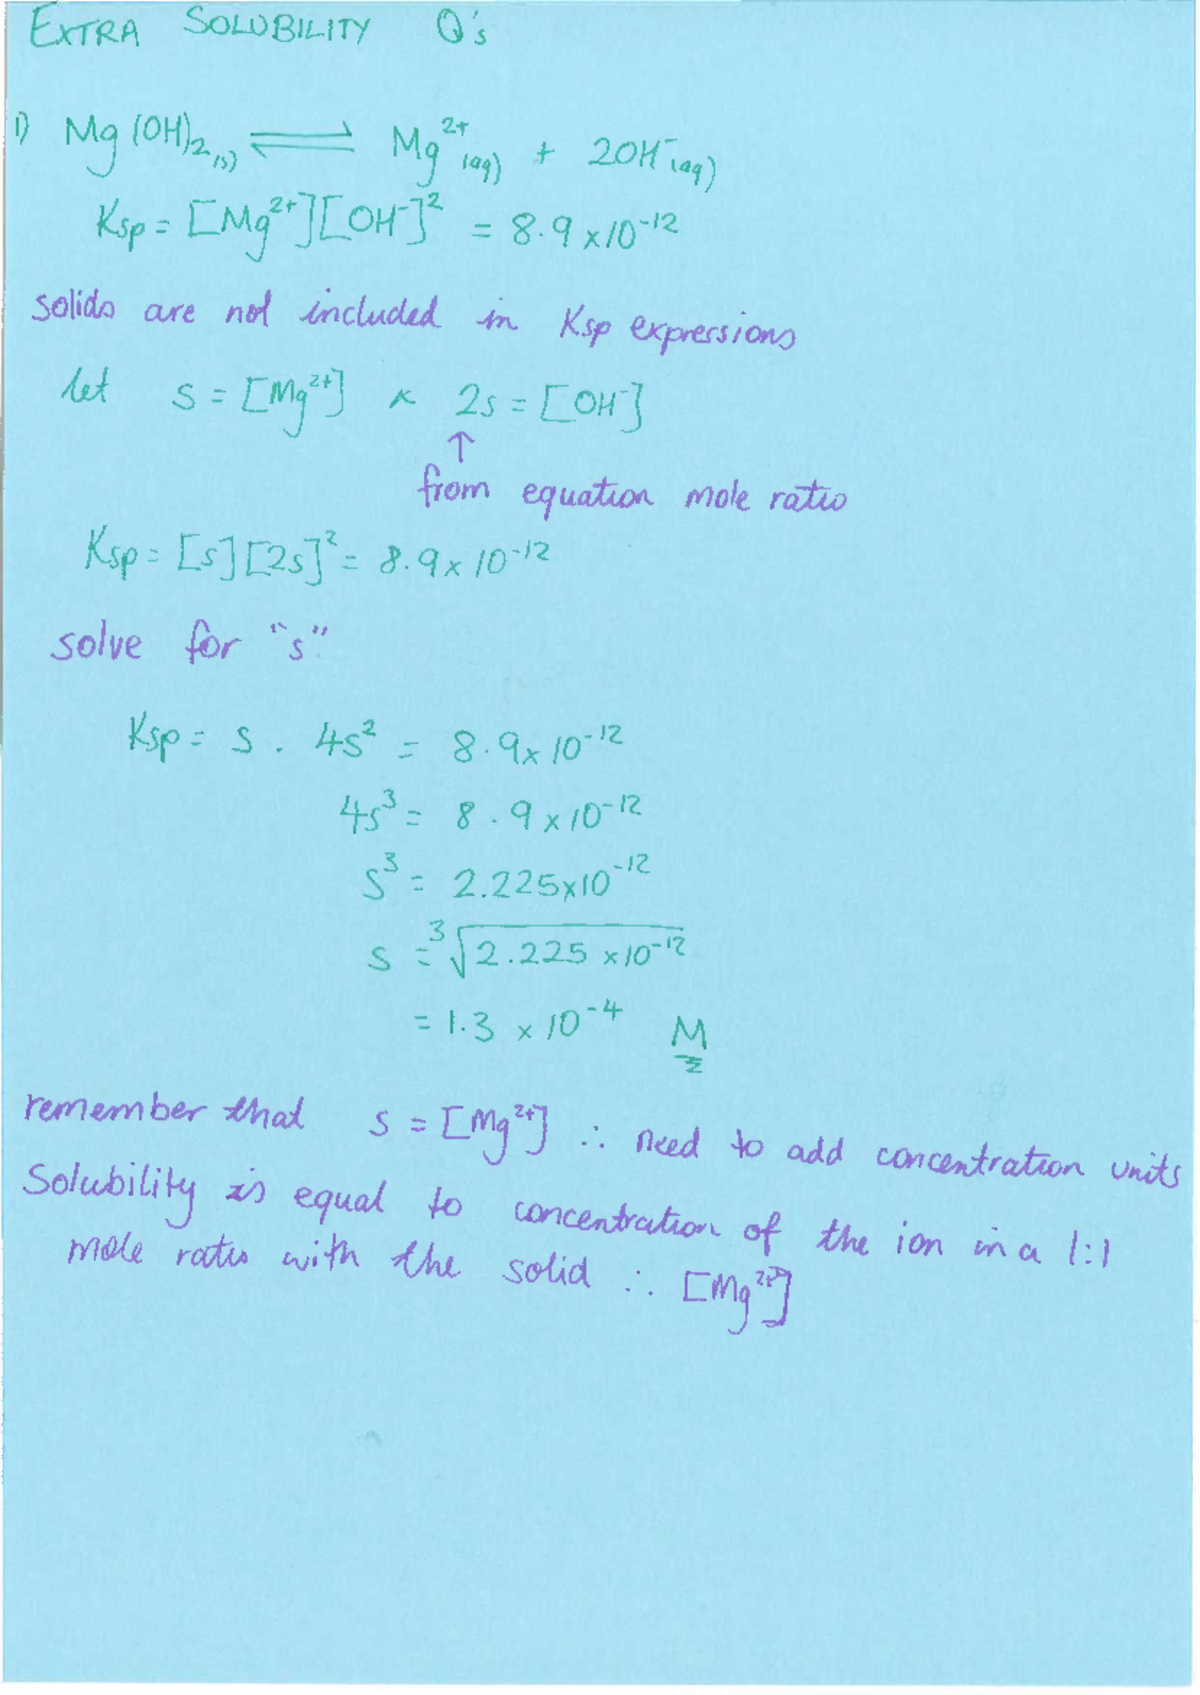 EXTRA SOLUBILITY Q's
1) Mg(OH)₂(s) ⇌ Mg²⁺(aq) + 2OH⁻(aq)
Ksp = [Mg²⁺][OH⁻]² = 8.9 x 10⁻¹²
solids are not included in Ksp expressions
let s = [Mg²⁺] & 2s = [OH⁻]
↑
from equation mole ratio
Ksp = [s][2s]² = 8.9 x 10⁻¹²
solve for "s"
Ksp = s . 4s² = 8.9 x 10⁻¹²
4s³ = 8.9 x 10⁻¹²
s³ = 2.225 x 10⁻¹²
s = ³√2.225 x 10⁻¹²
= 1.3 x 10⁻⁴ M
remember that s = [Mg²⁺] ∴ need to add concentration units
Solubility is equal to concentration of the ion in a 1:1
mole ratio with the solid ∴ [Mg²⁺]